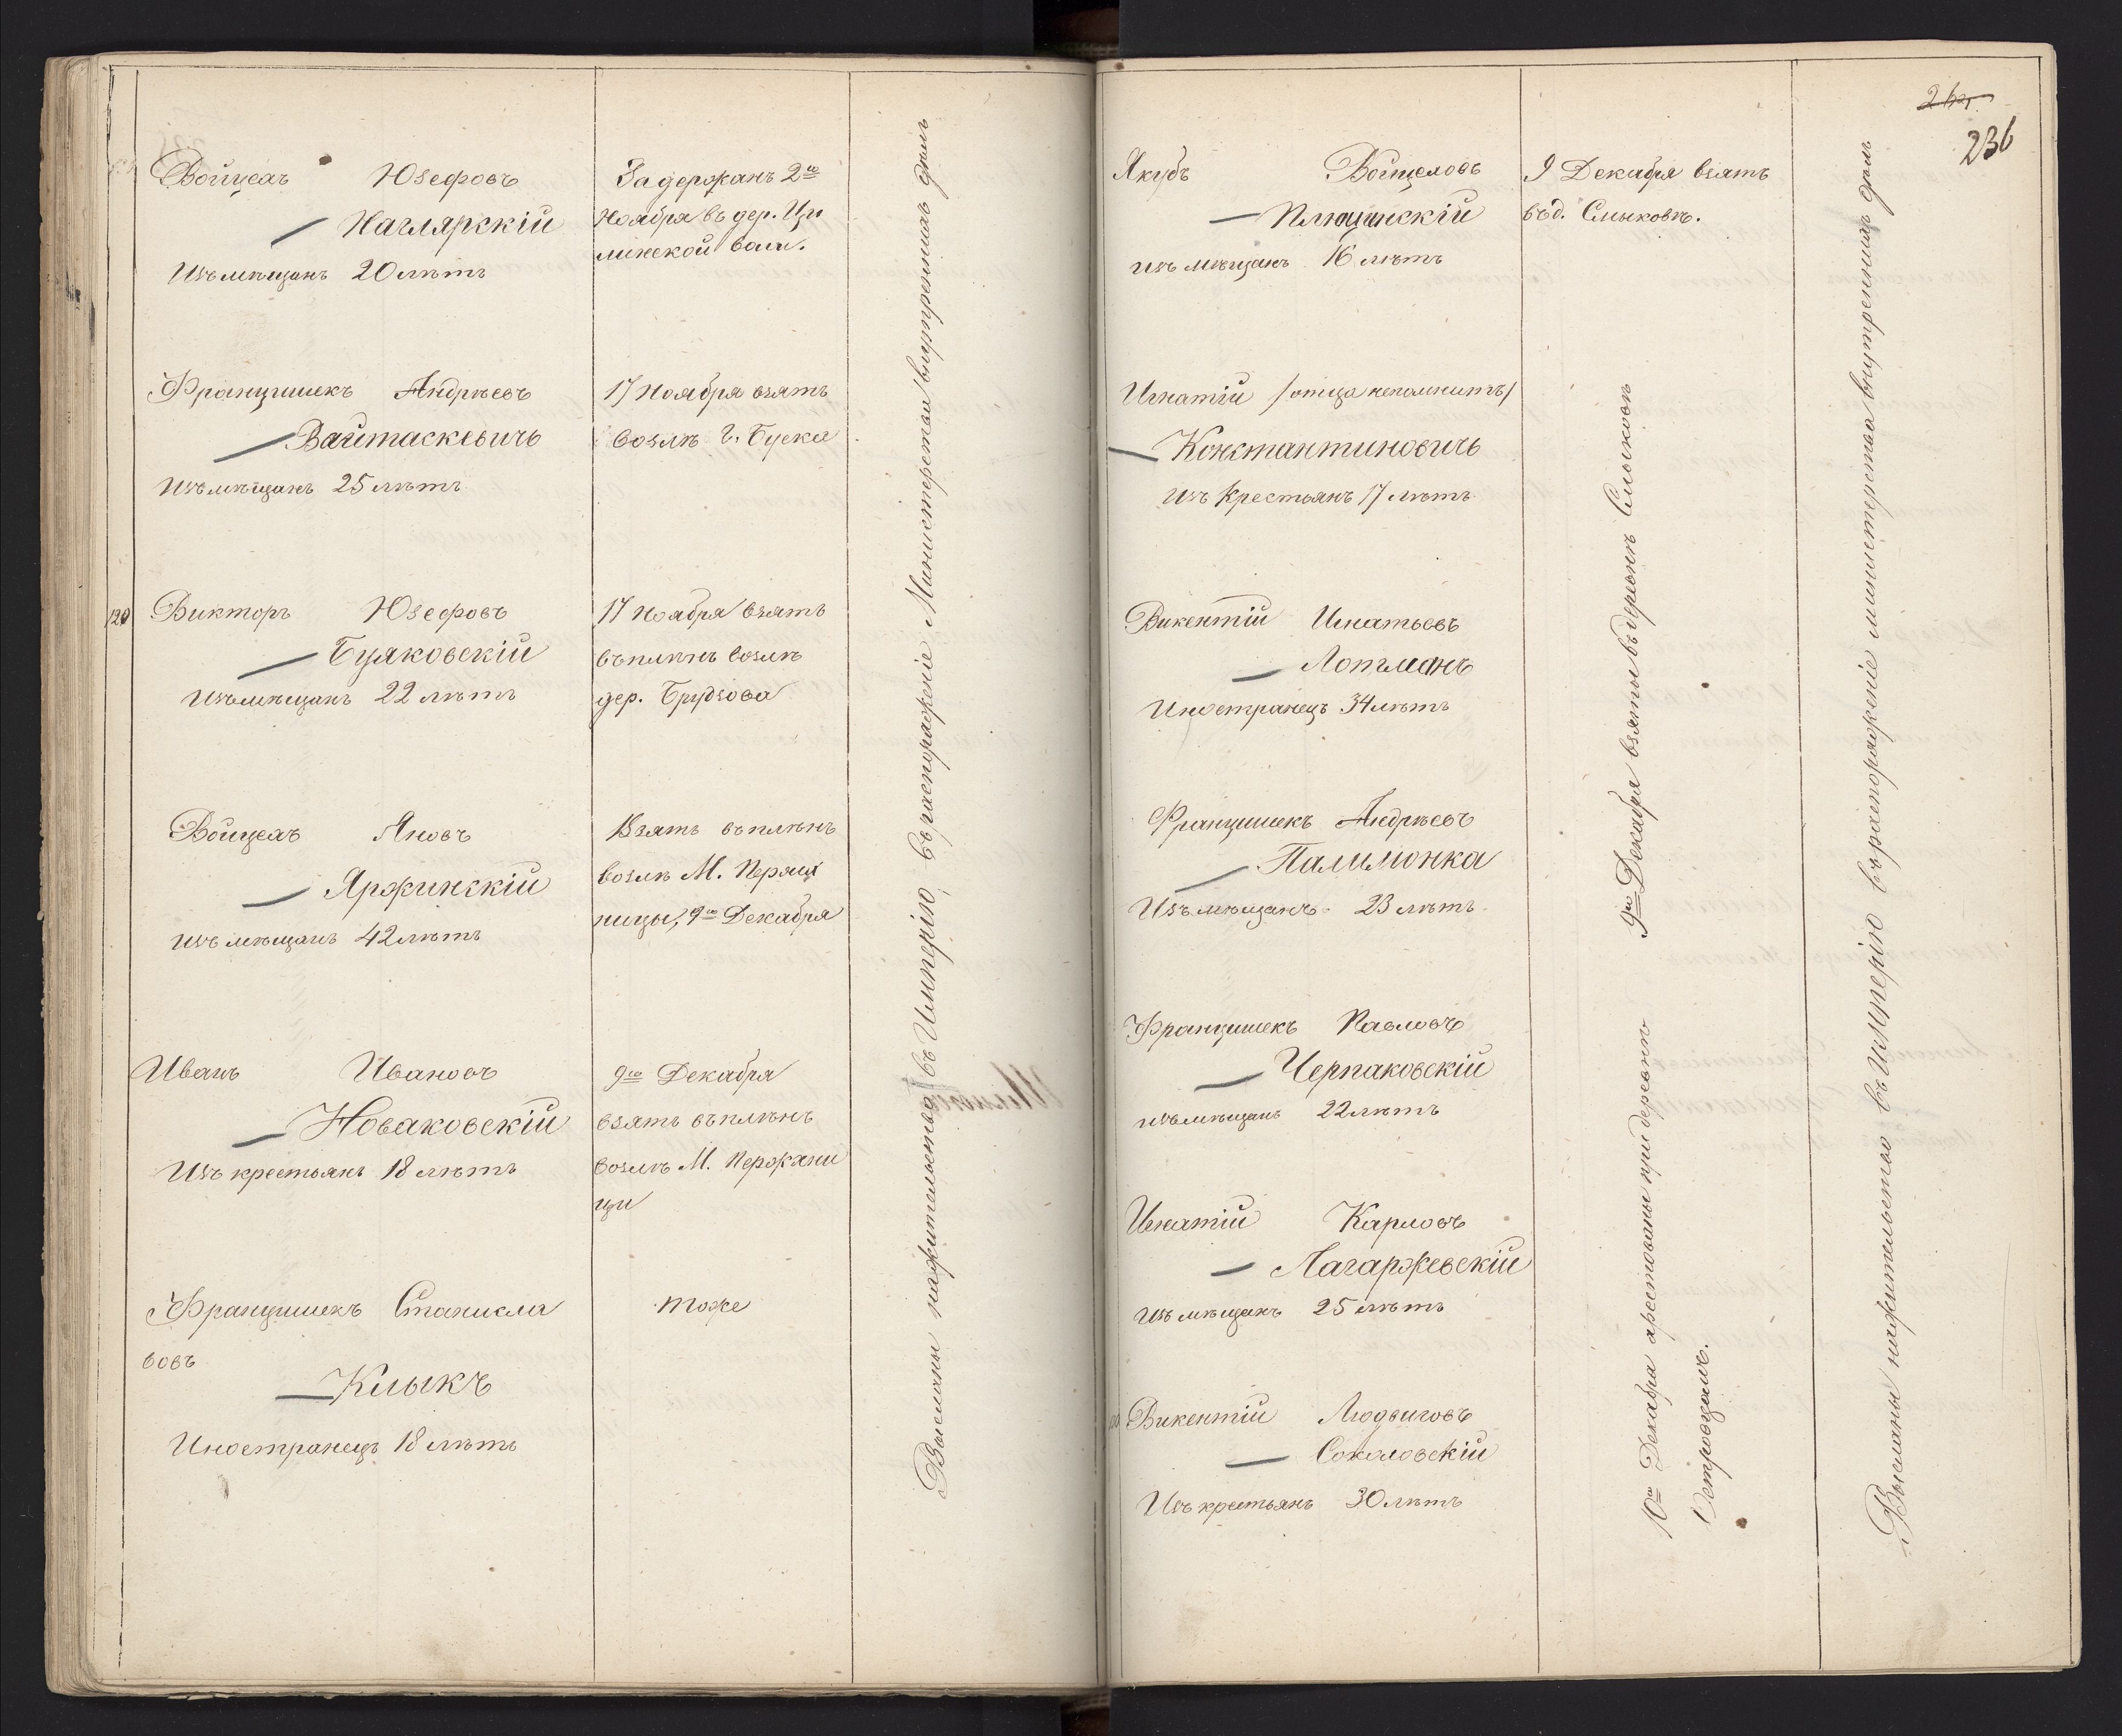 Войцехъ Юзефовъ
Наглярскій
Изъ мѣщанъ 20 лѣтъ
Задержанъ 2го
Ноября въ дер. Ци
минской воли.
Францишекъ Андреевъ
Вайтаскевичъ
Изъ мѣщанъ 25 лѣтъ
17 Ноября взятъ
возлѣ г. Буска
120
Викторъ Юзефовъ
Буяковскій
Изъ мѣщанъ 22 лѣтъ
17 Ноября взятъ
въ плѣнъ возлѣ
дер. Брудзова
Войцехъ Яновъ
Яржинскій
изъ мѣщанъ 42 лѣтъ
Взятъ въ плѣнъ
возлѣ М.
ницы, 9го Декабря
Иванъ Ивановъ
Новаковскій
Изъ крестьянъ 18 лѣтъ
9го Декабря
взятъ въ плѣнъ
возлѣ М. Пержхни
цы
Францишекъ Станисла
вовъ
Клыкъ
Иностранецъ 18 лѣтъ
тоже
Высланы на жительство въ Имперію, въ распоряженіе Министерства внутреннихъ дѣлъ
264
236
Якубъ Войцеховъ
Плющинскій
изъ мѣщанъ 16 лѣтъ
9 Декабря взятъ
въ д. Смыковѣ.
Игнатій /отца непомнитъ/
Константиновичъ
изъ Крестьянъ 17 лѣтъ
Викентій Игнатьевъ
Лотманъ
Иностранецъ 34 лѣтъ
Францишекъ Андреевъ
Палимонка
Изъ мѣщанъ 23 лѣтъ
Францишекъ Павловъ
Черпаковскій
изъ мѣщанъ 22 лѣтъ
9го Декабря взяты въ деревнѣ Смыковѣ
Игнатій Карловъ
Лагаржевскій
изъ мѣщанъ 25 лѣтъ
Викентій Людвиговъ
Соколовскій
Изъ крестьянъ 30 лѣтъ
10го Декабря арестованы при деревнѣ
Островцахъ.
Высланы на жительство въ Имперію въ распоряженіе министерства внутреннихъ дѣлъ